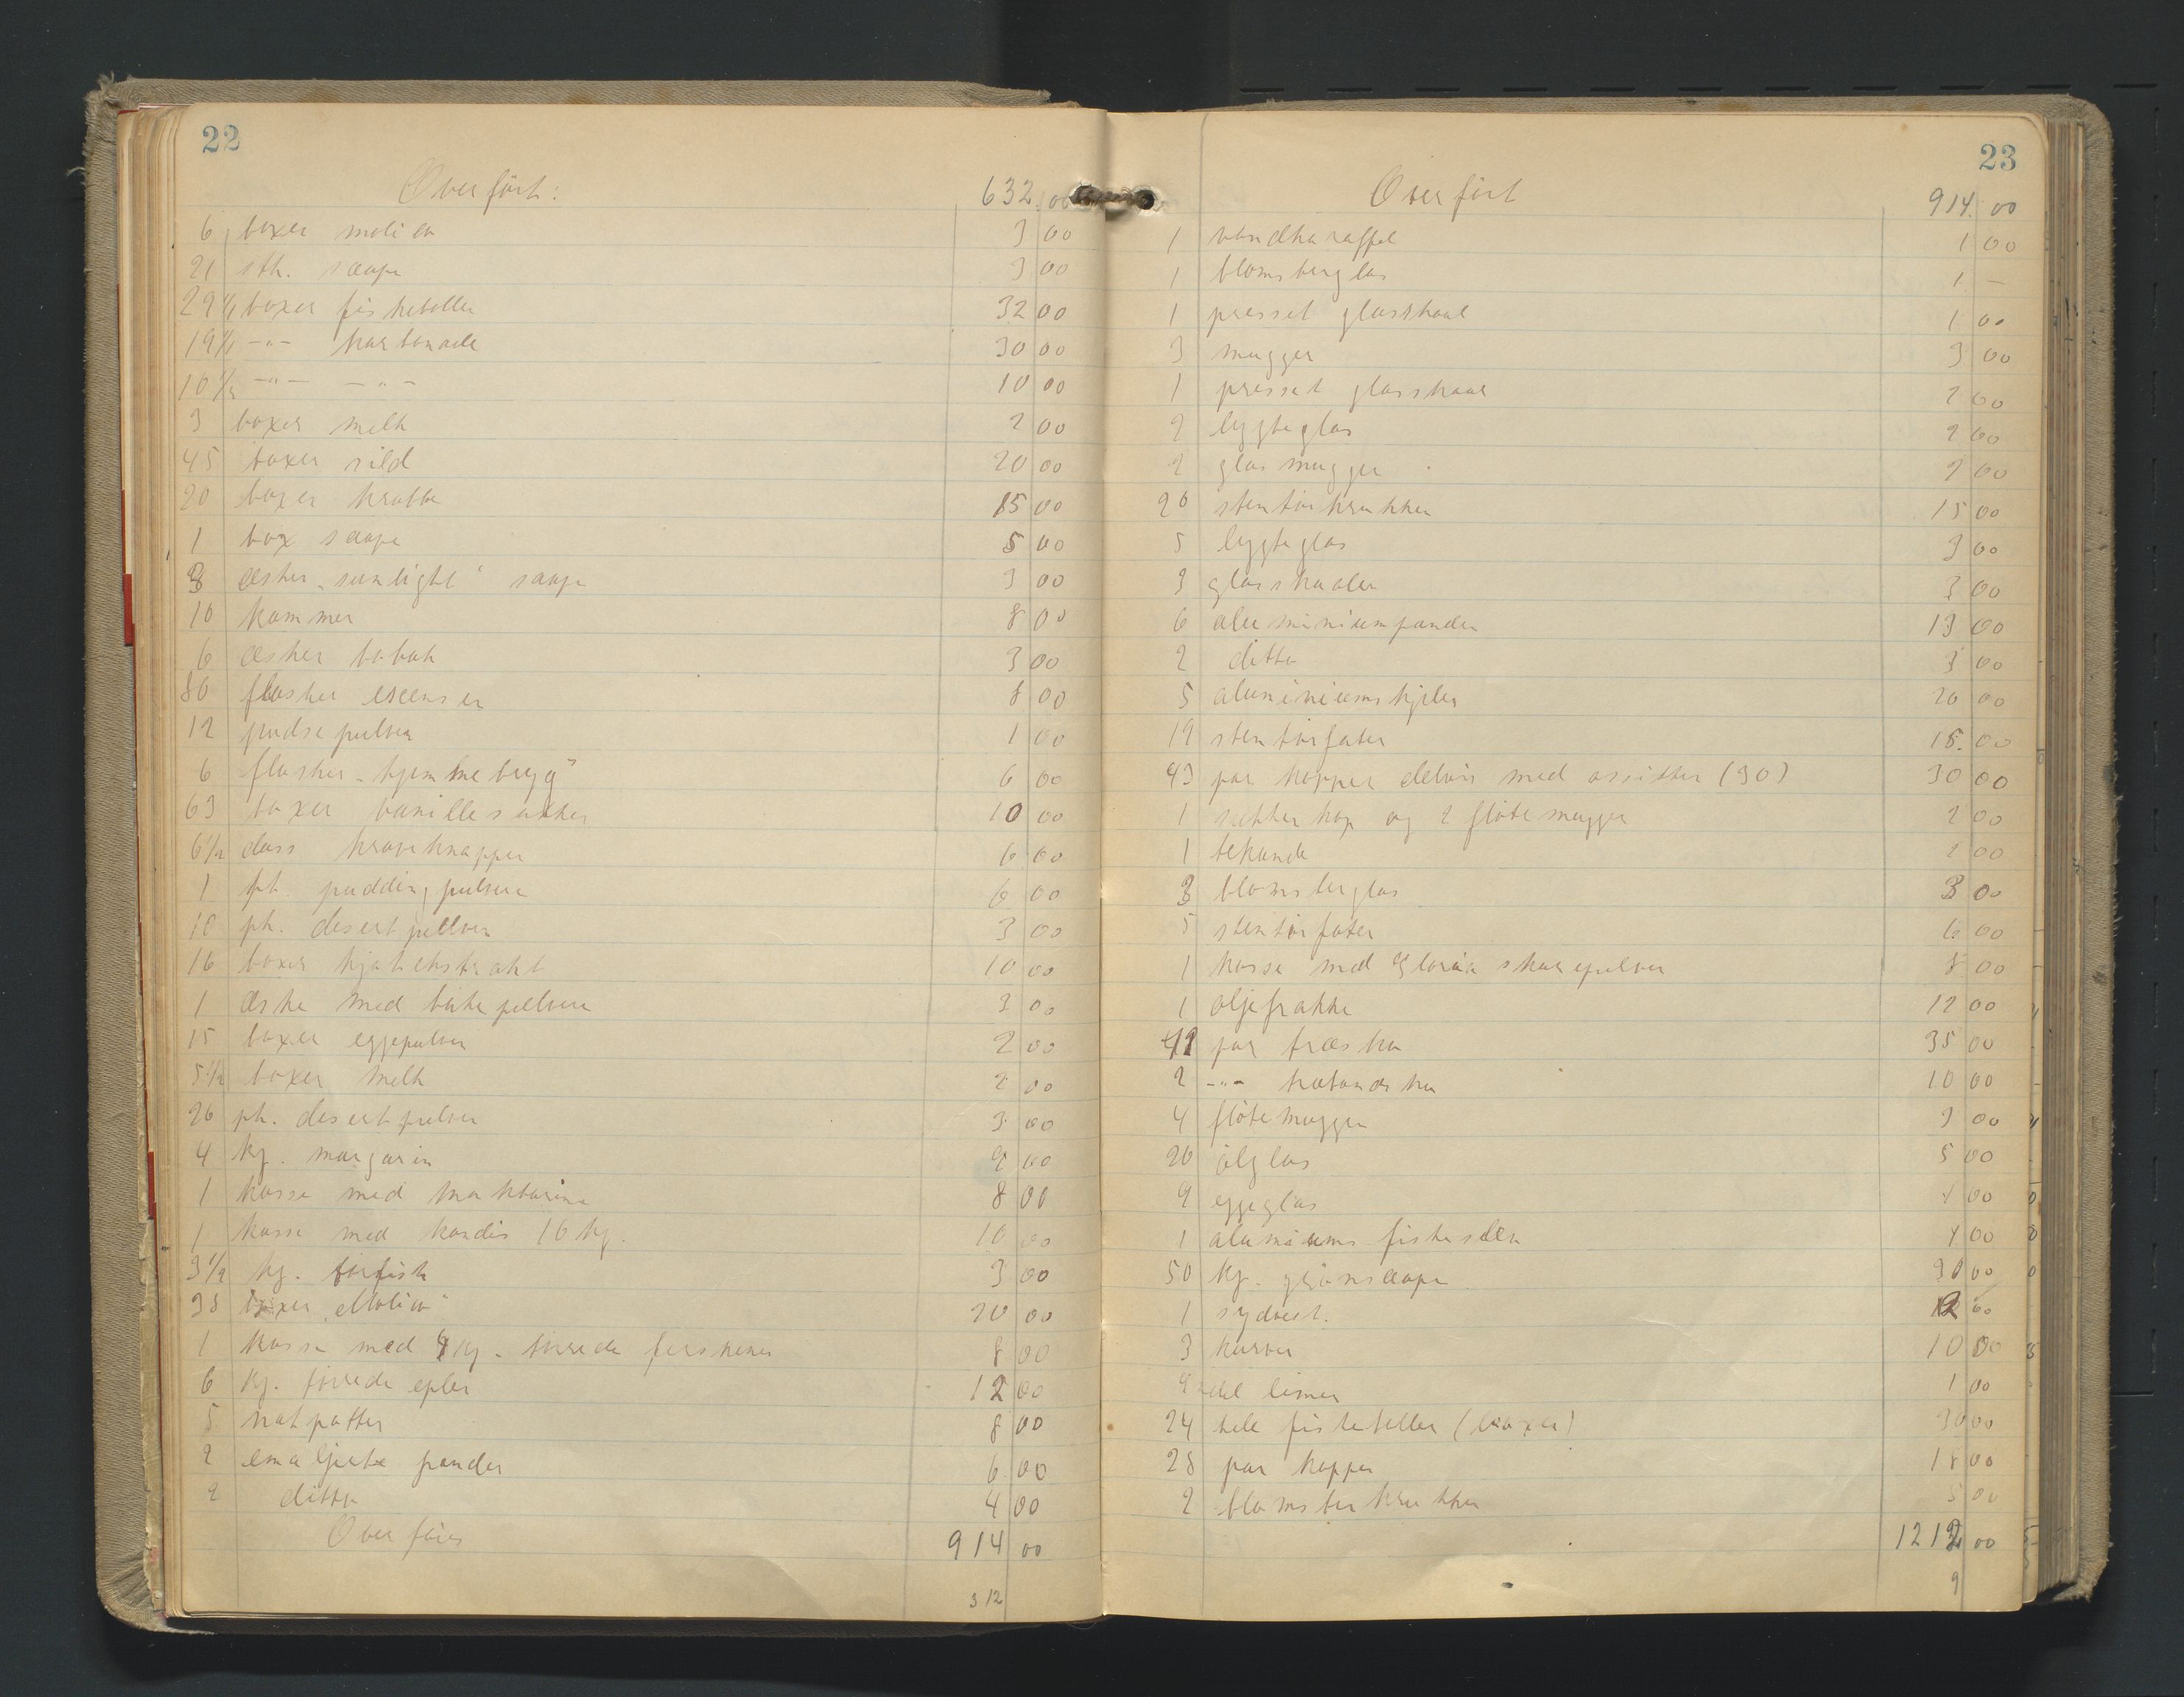 22
Overført: 632.00
6 boxer molico 3 00
21 stk. sæape 3 00
29 1/1 boxer fiskeboller 32 00
19 1/1 -"- karbonade 30 00
10 1/2 -"- -"- 10 00
3 boxer melk 2 00
45 boxer sild 20 00
20 boxer krabbe 15 00
1 box sæape 5 00
3 æsker "sunlight" sæape 3 00
10 kammer 8 00
6 æsker tobak 3 00
80 flasker escenser 8 00
12 pudsepulver 1 00
6 flasker "hjemmebrygg" 6 00
63 boxer vanillesukker 10 00
6 1/2 duss kraveknapper 6 00
1 pk. puddingpulver 6 00
10 pk. desertpullver 3 00
16 boxer kjøtekstrakt 10 00
1 æske med bakepulver 3 00
15 boxer eggepulver 2 00
5 1/2 boxer melk 2 00
26 pk. desertpulver 3 00
4 kg. margarin 2 00
1 kasse med 8 00
1 kasse med kandis 16 kg. 10 00
3 1/2 kg. tørfisk 3 00
38 boxer "Molico" 20 00
1 kasse med 4 kg. tørrede ferskener 8 00
6 kg. tørrede epler 12 00
5 natpotter 8 00
2 emaljerte pander 6 00
2 ditto 4 00
Overføres 914 00
312
23
Overført 914.00
1 vandkaraffel 1 00
1 blomsterglas 1 -
1 presset glasskaal 1 00
3 mugger 3 00
1 presset glasskaal 2 00
2 lygteglas 2 00
2 glasmugger 2 00
20 stentøikrukker 15 00
5 lygteglas 3 00
3 glasskaaler 3 00
6 aluminiumpander 13 00
2 ditto 3 00
5 aluminiumskjeler 20 00
19 stentøifater 15.00
43 par kopper delvis med assitter (30) 30 00
1 sukkerkop og 2 fløtemugger 2 00
1 tekande 2 00
3 blomsterglas 3 00
5 stentøifater 6 00
1 kasse med Gloria skurepulver 8 00
1 oljefrakke 12 00
41 par træsko 35 00
2 -"- træbundsko 10 00
4 fløtemugger 3 00
20 ølglas 5 00
9 eggeglas 00
1 aluminiums fiskeslev 00
50 kg. grønsæape 30 00
1 sydvest. 2 00
3 kurver 10 00
del limer 1 00
24 hele fiskeboller (boxer) 30 00
28 par kopper 18 00
2 blomsterkrukker 5 00
1212 00
9